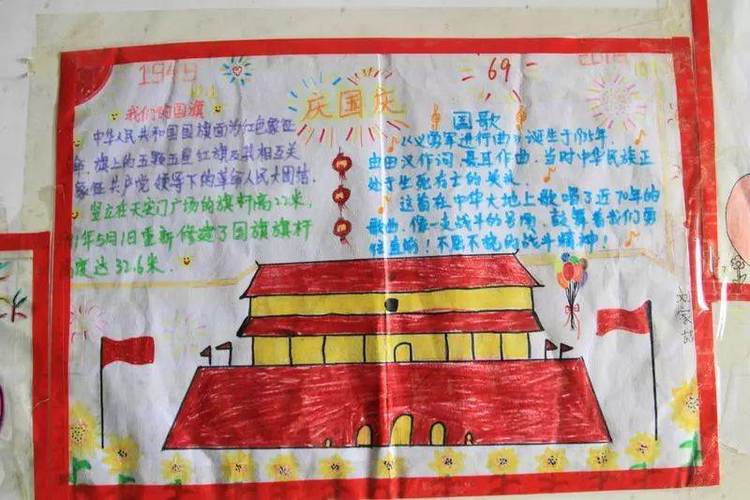 1949
69
2018
庆国庆
我们的国旗
中华人民共和国国旗面为红色象征
旗上的五颗五星红旗及其相互关
象征共产党领导下的革命人民大团结.
竖立在天安门广场的旗杆高22米.
1年5月1日重新修建了国旗旗杆
高度达32.6米.
国歌
《义勇军进行曲》诞生于1935年.
由田汉作词,聂耳作曲.当时中华民族正
处于生死存亡的关头.
这首在中华大地上歌唱了近70年的
歌曲.像一支战斗的号角,鼓舞着我们勇
往直前!不屈不挠的战斗精神!